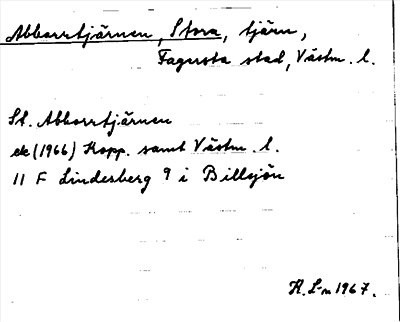 Abborrtjärnen, Stora, tjärn,
Fagersta stad, Västm. l.
St. Abborrtjärnen
ek (1966) Kopp. samt Västm. l.
11 F Lindesberg 9 i Billsjön
K. L-m 1967.